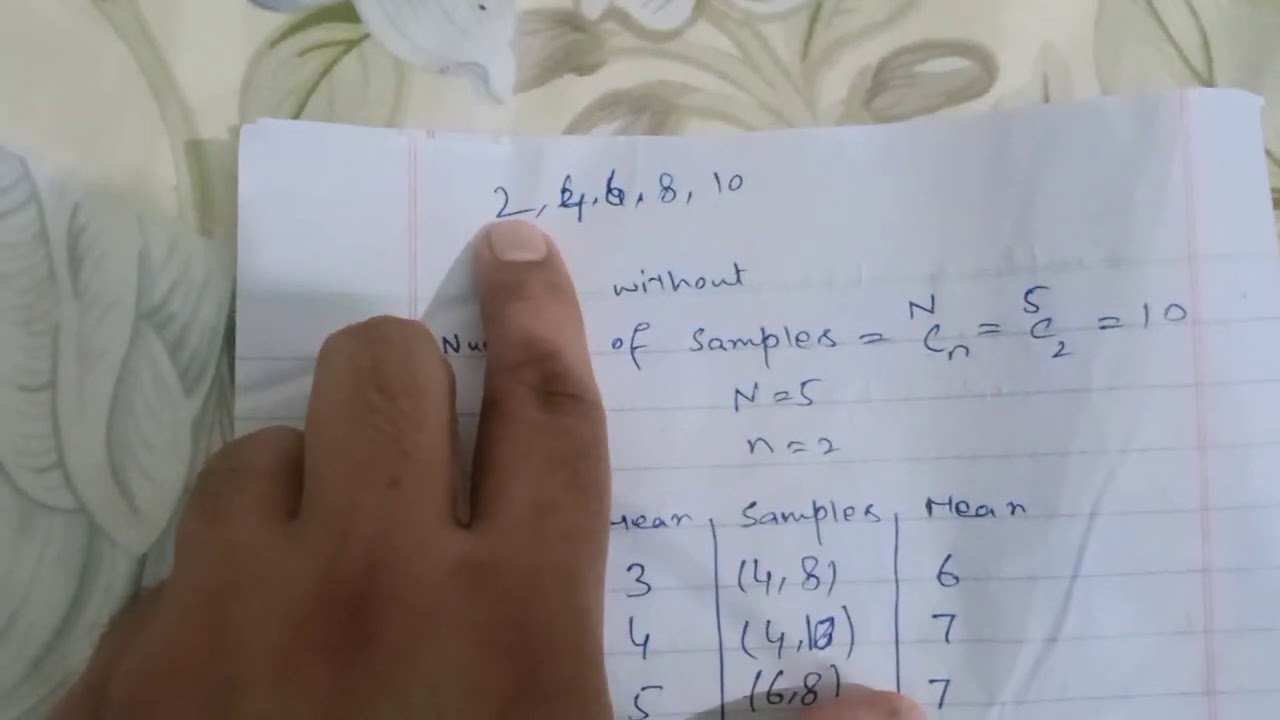 2, 4, 6, 8, 10
without
of Samples = N C n = 5 C 2 = 10
N = 5
n = 2
Samples Mean
3 (4, 8) 6
4 (4, 10) 7
5 (6, 8) 7